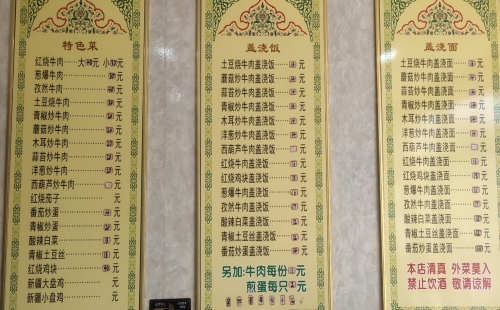 特色菜
红烧牛肉 大 元 小 元
葱爆牛肉 元
孜然牛肉 元
土豆烧牛肉 元
青椒炒牛肉 元
蘑菇炒牛肉 元
木耳炒牛肉 元
蒜苔炒牛肉 元
洋葱炒牛肉 元
西葫芦炒牛肉 元
红烧茄子 元
番茄炒蛋 元
青椒炒蛋 元
酸辣白菜 元
青椒土豆丝 元
红烧鸡块 元
新疆大盘鸡 元
新疆小盘鸡 元
盖浇饭
土豆烧牛肉盖浇饭 元
蘑菇炒牛肉盖浇饭 元
蒜苔炒牛肉盖浇饭 元
青椒炒牛肉盖浇饭 元
木耳炒牛肉盖浇饭 元
洋葱炒牛肉盖浇饭 元
西葫芦牛肉盖浇饭 元
红烧牛肉盖浇饭 元
红烧鸡块盖浇饭 元
葱爆牛肉盖浇饭 元
孜然牛肉盖浇饭 元
酸辣白菜盖浇饭 元
青椒土豆丝盖浇饭 元
番茄炒蛋盖浇饭 元
另加:牛肉每份 元
煎蛋每只 元
盖浇面
土豆烧牛肉盖浇面 元
蘑菇炒牛肉盖浇面 元
蒜苔炒牛肉盖浇面 元
青椒炒牛肉盖浇面 元
木耳炒牛肉盖浇面 元
洋葱炒牛肉盖浇面 元
西葫芦牛肉盖浇面 元
红烧牛肉盖浇面 元
红烧鸡块盖浇面 元
葱爆牛肉盖浇面 元
孜然牛肉盖浇面 元
酸辣白菜盖浇面 元
青椒土豆丝盖浇面 元
番茄炒蛋盖浇面 元
本店清真 外菜莫入
禁止饮酒 敬请谅解